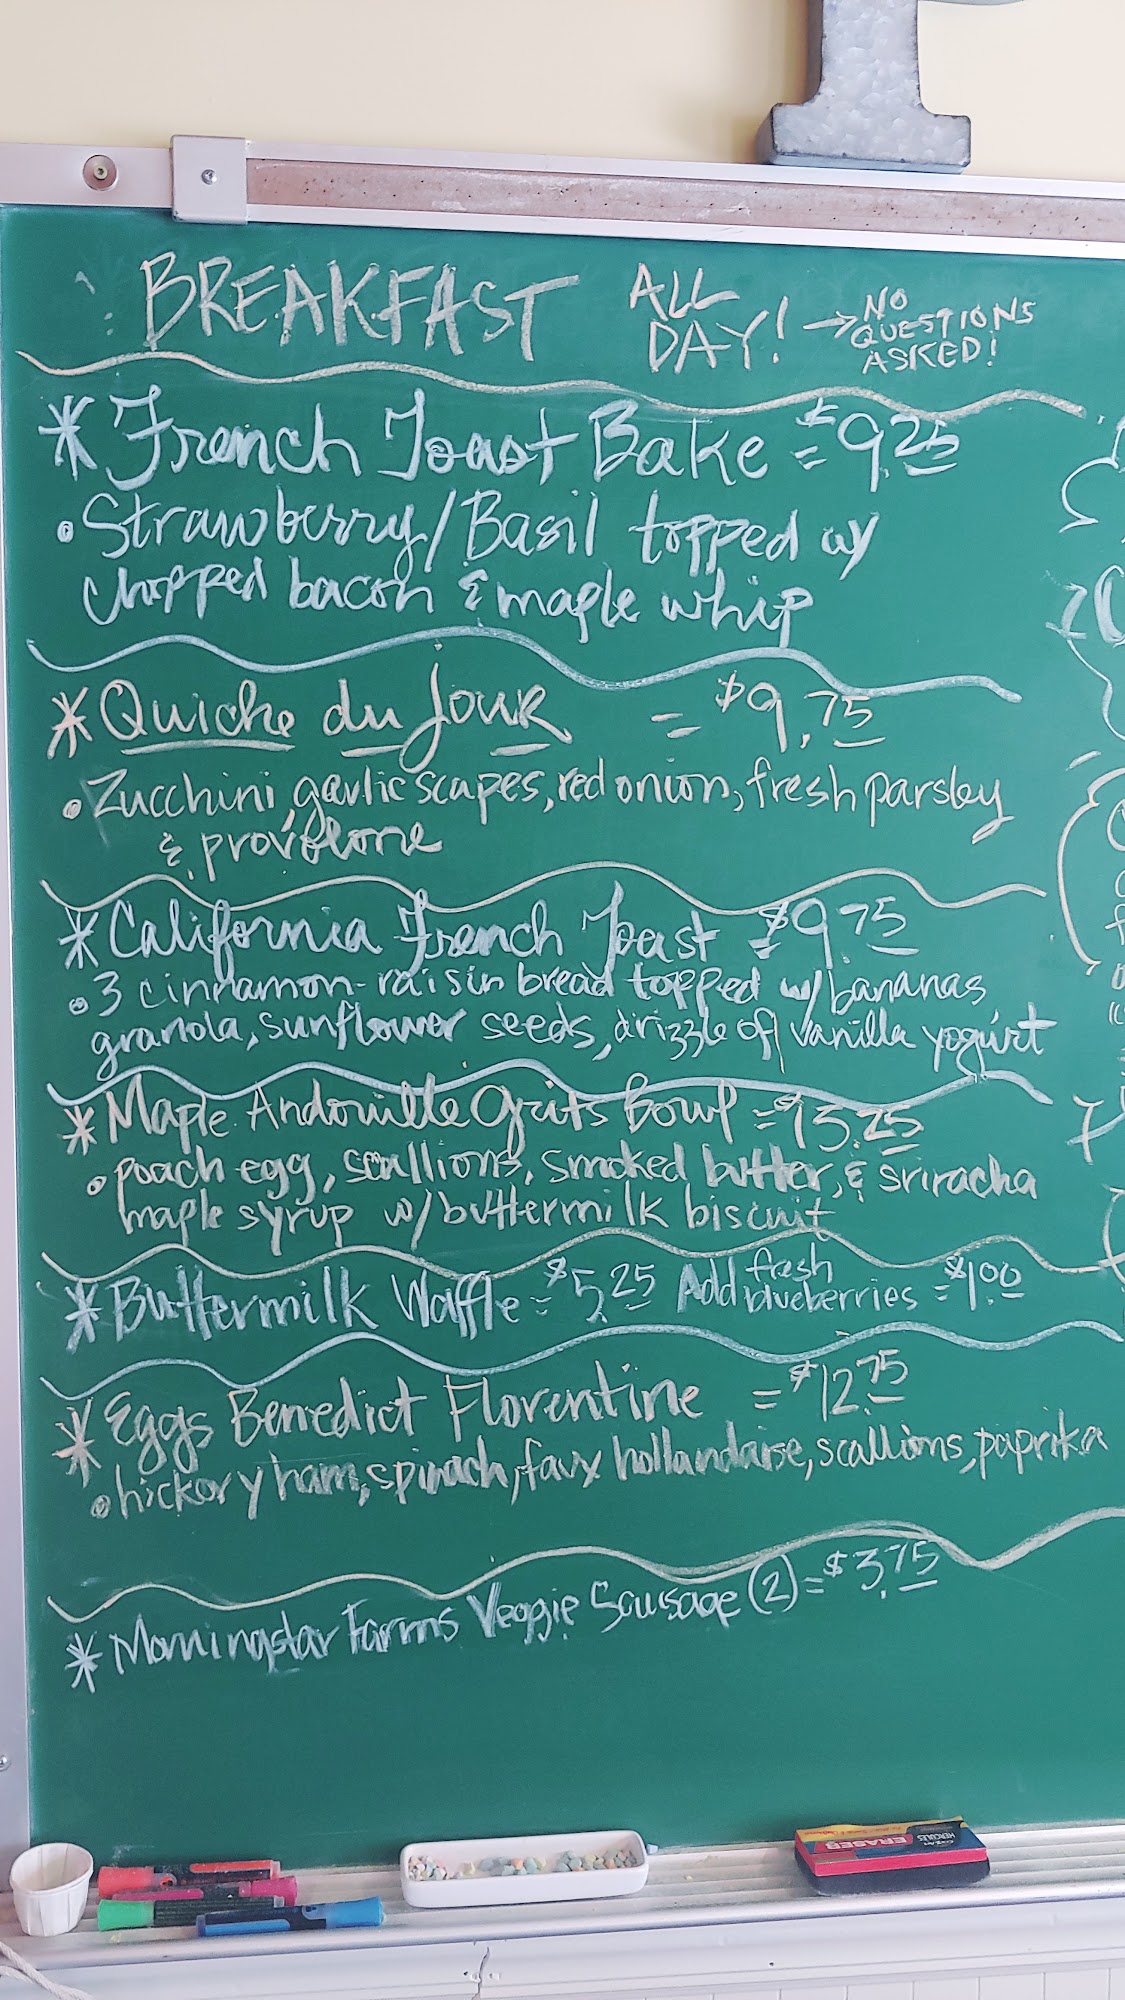 BREAKFAST ALL DAY! → NO QUESTIONS ASKED!
* French Toast Bake = $9.25
• Strawberry/Basil topped w/
chopped bacon & maple whip
* Quiche du jour = $9.75
• Zucchini, garlic scapes, red onion, fresh parsley
& provolone
* California French Toast = $9.75
• 3 cinnamon-raisin bread topped w/ bananas
granola, sunflower seeds, drizzle of vanilla yogurt
* Maple Andouille Grits Bowl = $13.25
• poach egg, scallions, smoked butter, & sriracha
maple syrup w/ buttermilk biscuit
* Buttermilk Waffle = $5.25 Add fresh blueberries = $1.00
* Eggs Benedict Florentine = $12.75
• hickory ham, spinach, faux hollandaise, scallions, paprika
* Morningstar Farms Veggie Sausage (2) = $3.75
ERASER HERCULES